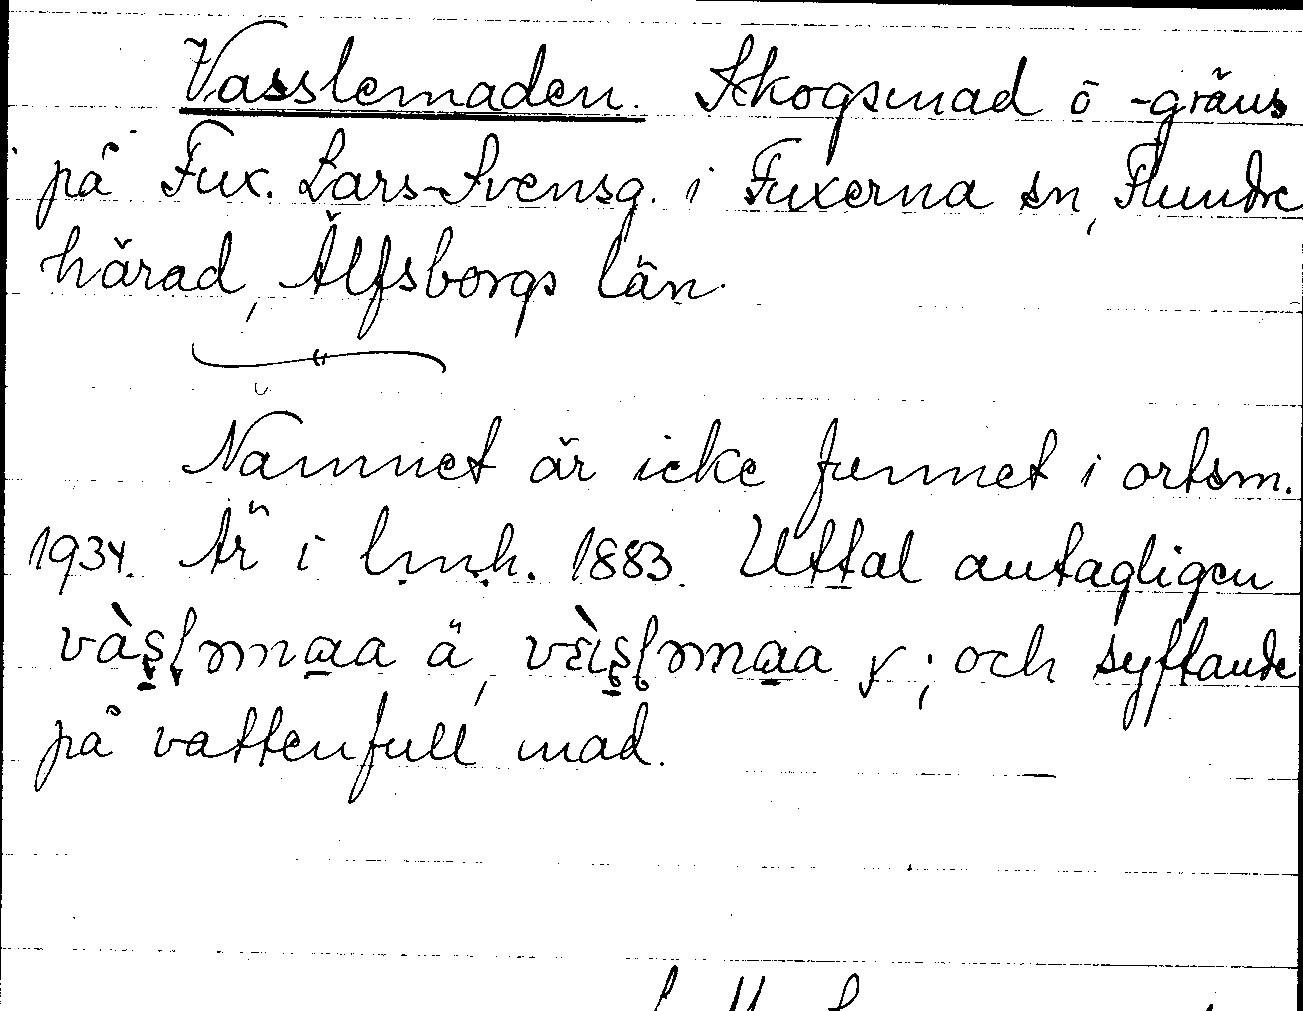 Vasslemaden. Skogsmad ö -gräns
på Fux. Lars-Svensg. i Fuxerna sn, Flundre
härad, Älfsborgs län.
Namnet är icke funnet i ortsm.
1934. Är i l.m.h. 1883. Uttal antagligen
ä, y; och syftande
på vattenfull mad.